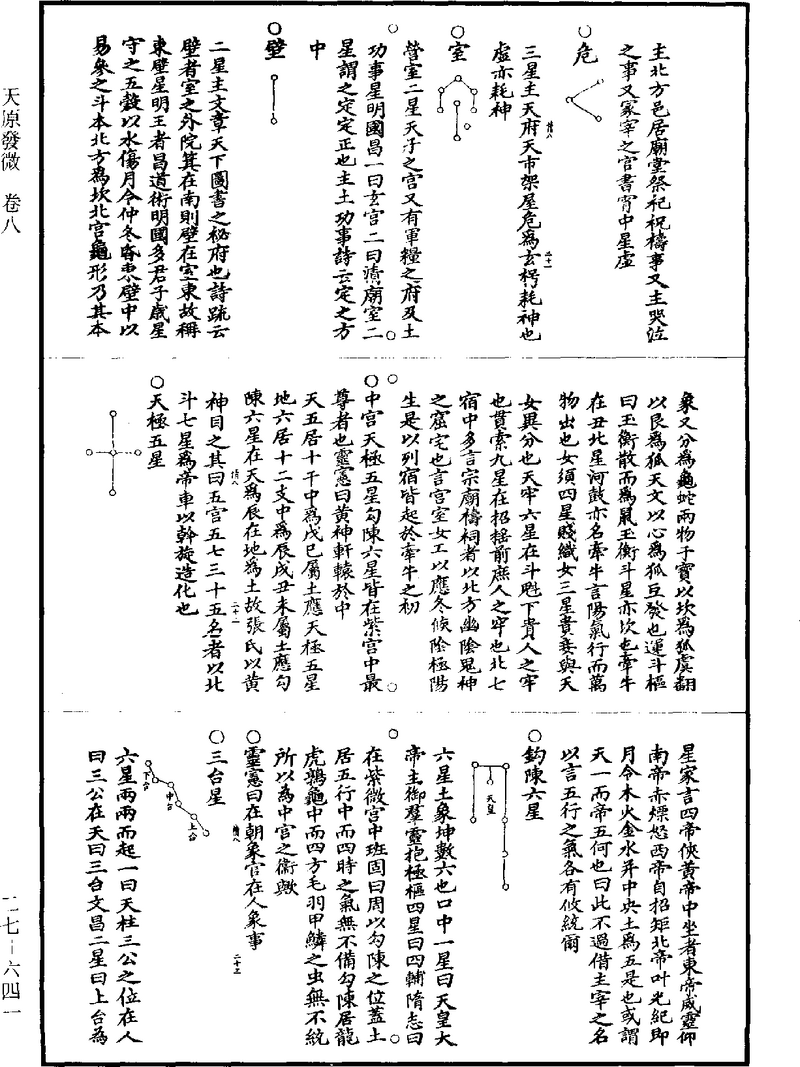 天原發微 卷八
主北方邑居廟堂祭祀祝禱事又主哭泣
之事又冢宰之官書宵中星虛
○危
三星主天府天市架屋危爲玄枵耗神也
虛亦耗神
○室
營室二星天子之宮又有軍糧之府及土
功事星明國昌一曰玄宮二曰清廟室二
星謂之定定正也主土功事詩云定之方
中
○壁
二星主文章天下圖書之秘府也詩疏云
壁者室之外院箕在南則壁在室東故稱
東壁星明王者昌道術明國多君子歲星
守之五穀以水傷月令仲冬昏東壁中以
易參之斗本北方爲坎北宮龜形乃其本
象又分爲龜蛇兩物子寶以坎爲狐虞翻
以艮爲狐天文以心爲狐豆發也運斗樞
曰玉衡散而爲鼠玉衡斗星亦坎也牽牛
在丑北星河鼓亦名牽牛言陽氣行而萬
物出也女須四星賤織女三星貴妾與天
女異分也天牢六星在斗魁下貴人之牢
也貫索九星在招搖前庶人之牢也北七
宿中多言宗廟禱祠者以北方幽陰鬼神
之窟宅也言宮室女工以應冬候陰極陽
生是以列宿皆起於牽牛之初
○中宮天極五星勾陳六星皆在紫宮中最
尊者也靈憲曰黃神軒轅於中
天五居十干中爲戊己屬土應天極五星
地六居十二支中爲辰戌丑未屬土應勾
陳六星在天爲辰在地爲土故張氏以黃
神目之其曰五宮五七三十五名者以北
斗七星爲帝車以斡旋造化也
○天極五星
星家言四帝俠黃帝中坐者東帝威靈仰
南帝赤熛怒西帝白招矩北帝叶光紀即
月令木火金水并中央土爲五是也或謂
天一而帝五何也曰此不過借主宰之名
以言五行之氣各有攸統爾
○鈎陳六星
天皇
六星土象坤數六也口中一星曰天皇大
帝主御羣靈抱極樞四星曰四輔隋志曰
在紫微宮中班固曰周以勾陳之位蓋土
居五行中而四時之氣無不備勾陳居龍
虎鶉龜中而四方毛羽甲鱗之虫無不統
所以為中宮之衞歟
○靈憲曰在朝象官在人象事
○三台星
上台
中台
下台
六星兩兩而起一曰天柱三公之位在人
曰三公在天曰三台文昌二星曰上台為
二七—六四一